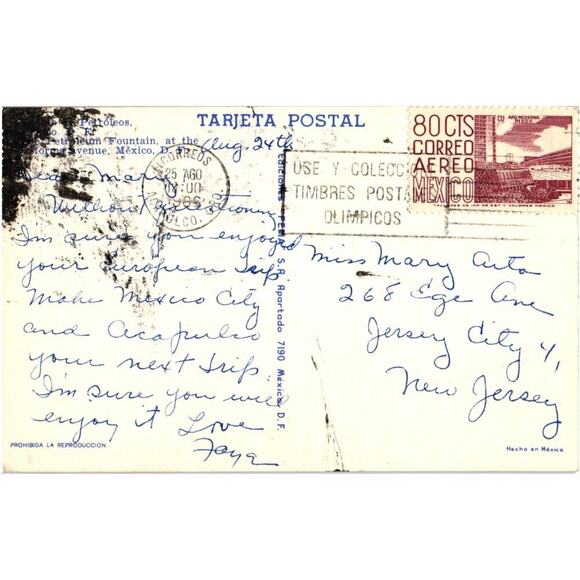 TARJETA POSTAL
Petróleos,
Petroleum Fountain, at the
Avenue, México, D. F.
Aug. 24th
CORREOS
25 AGO
ACAPULCO, GRO.
USE Y COLECC
TIMBRES POSTA
OLIMPICOS
80 CTS
CORREO
AEREO
MEXICO
CU ARQ MODERNA
Dear Mary
Without questioning
I'm sure you enjoyed
your European trip
Make Mexico City
and Acapulco
your next trip.
I'm sure you will
enjoy it Love
Faye
S.A. Apartado 7190 México, D. F.
Miss Mary Arta
268 Ege Ave
Jersey City 4,
New Jersey
PROHIBIDA LA REPRODUCCION.
Hecho en México